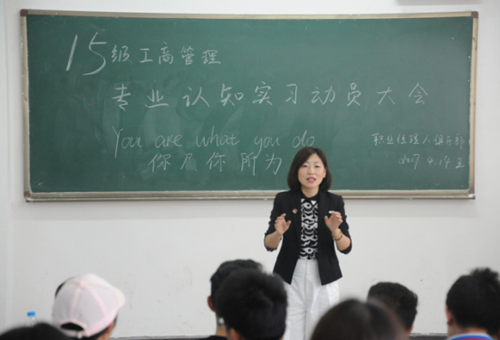 15级工商管理
专业认知实习动员大会
You are what you do
你乃你所为
职业经理人俱乐部
2017.4.14 五